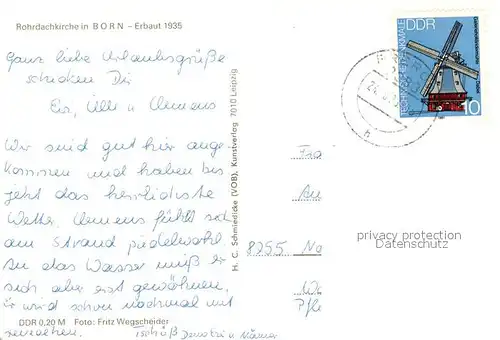 Rohrdachkirche in BORN – Erbaut 1935
Ganz liebe Urlaubsgrüße
schicken Dir
Eis, Ulli u. Clemens
Wir sind gut hier ange-
kommen und haben bis
jetzt das herrlichste
Wetter. Clemens fühlt sich
am Strand pudelwohl
An das Wasser muß er
sich aber erst gewöhnen,
Er wird schon nochmal mit
Tschüß
DDR 0,20 M Foto: Fritz Wegscheider
H. C. Schmiedicke (VOB), Kunstverlag 7010 Leipzig
DDR
10
8255
privacy protection
Datenschutz